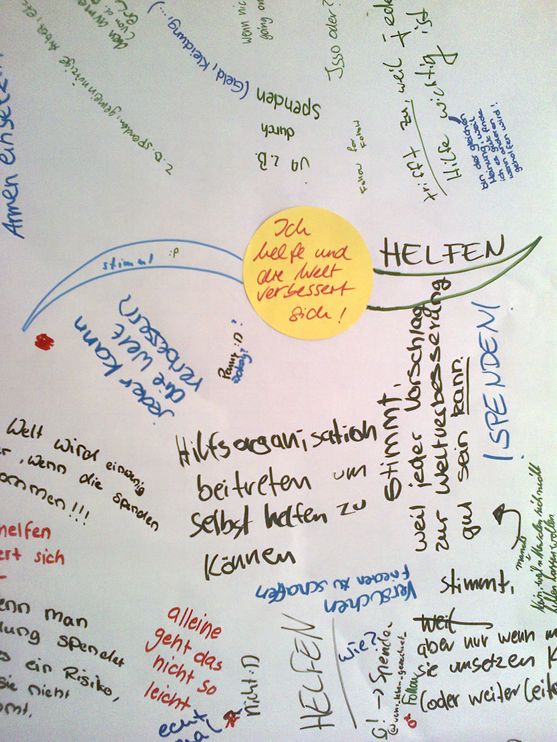 Armen einsetz
z.B. Spenden, gemeinnützige
Spenden (Geld, Kleidung...)
durch
va z.B.
wenn nic
going on
Isso oder?
Follow for
Follow
trifft zu, weil Jede
Hilfe wichtig ist
bin der gleichen
Meinung, weil
Ich
helfe und
die Welt
verbessert
sich!
HELFEN
stimmt :P
jeder kann
die Welt
verbessern
!SPENDEN!
Stimmt,
weil jeder Vorschlag
zur Weltverbesserung
gut sein kann.
Hilfsorganisation
beitreten um
selbst helfen zu
können
Welt wird einzig
, wenn die spenden
ommen!!!
helfen
ert sich
enn man
dung spendet
s ein Risiko,
sie nicht
mmt.
alleine
geht das
nicht so
leicht
echt
nicht :D
Versuchen
Frieden zu schaffen
HELFEN
wie?
G! -> Spende
Follow
stimmt,
weil
aber nur wenn m
sie umsetzen k
(oder weiterleite